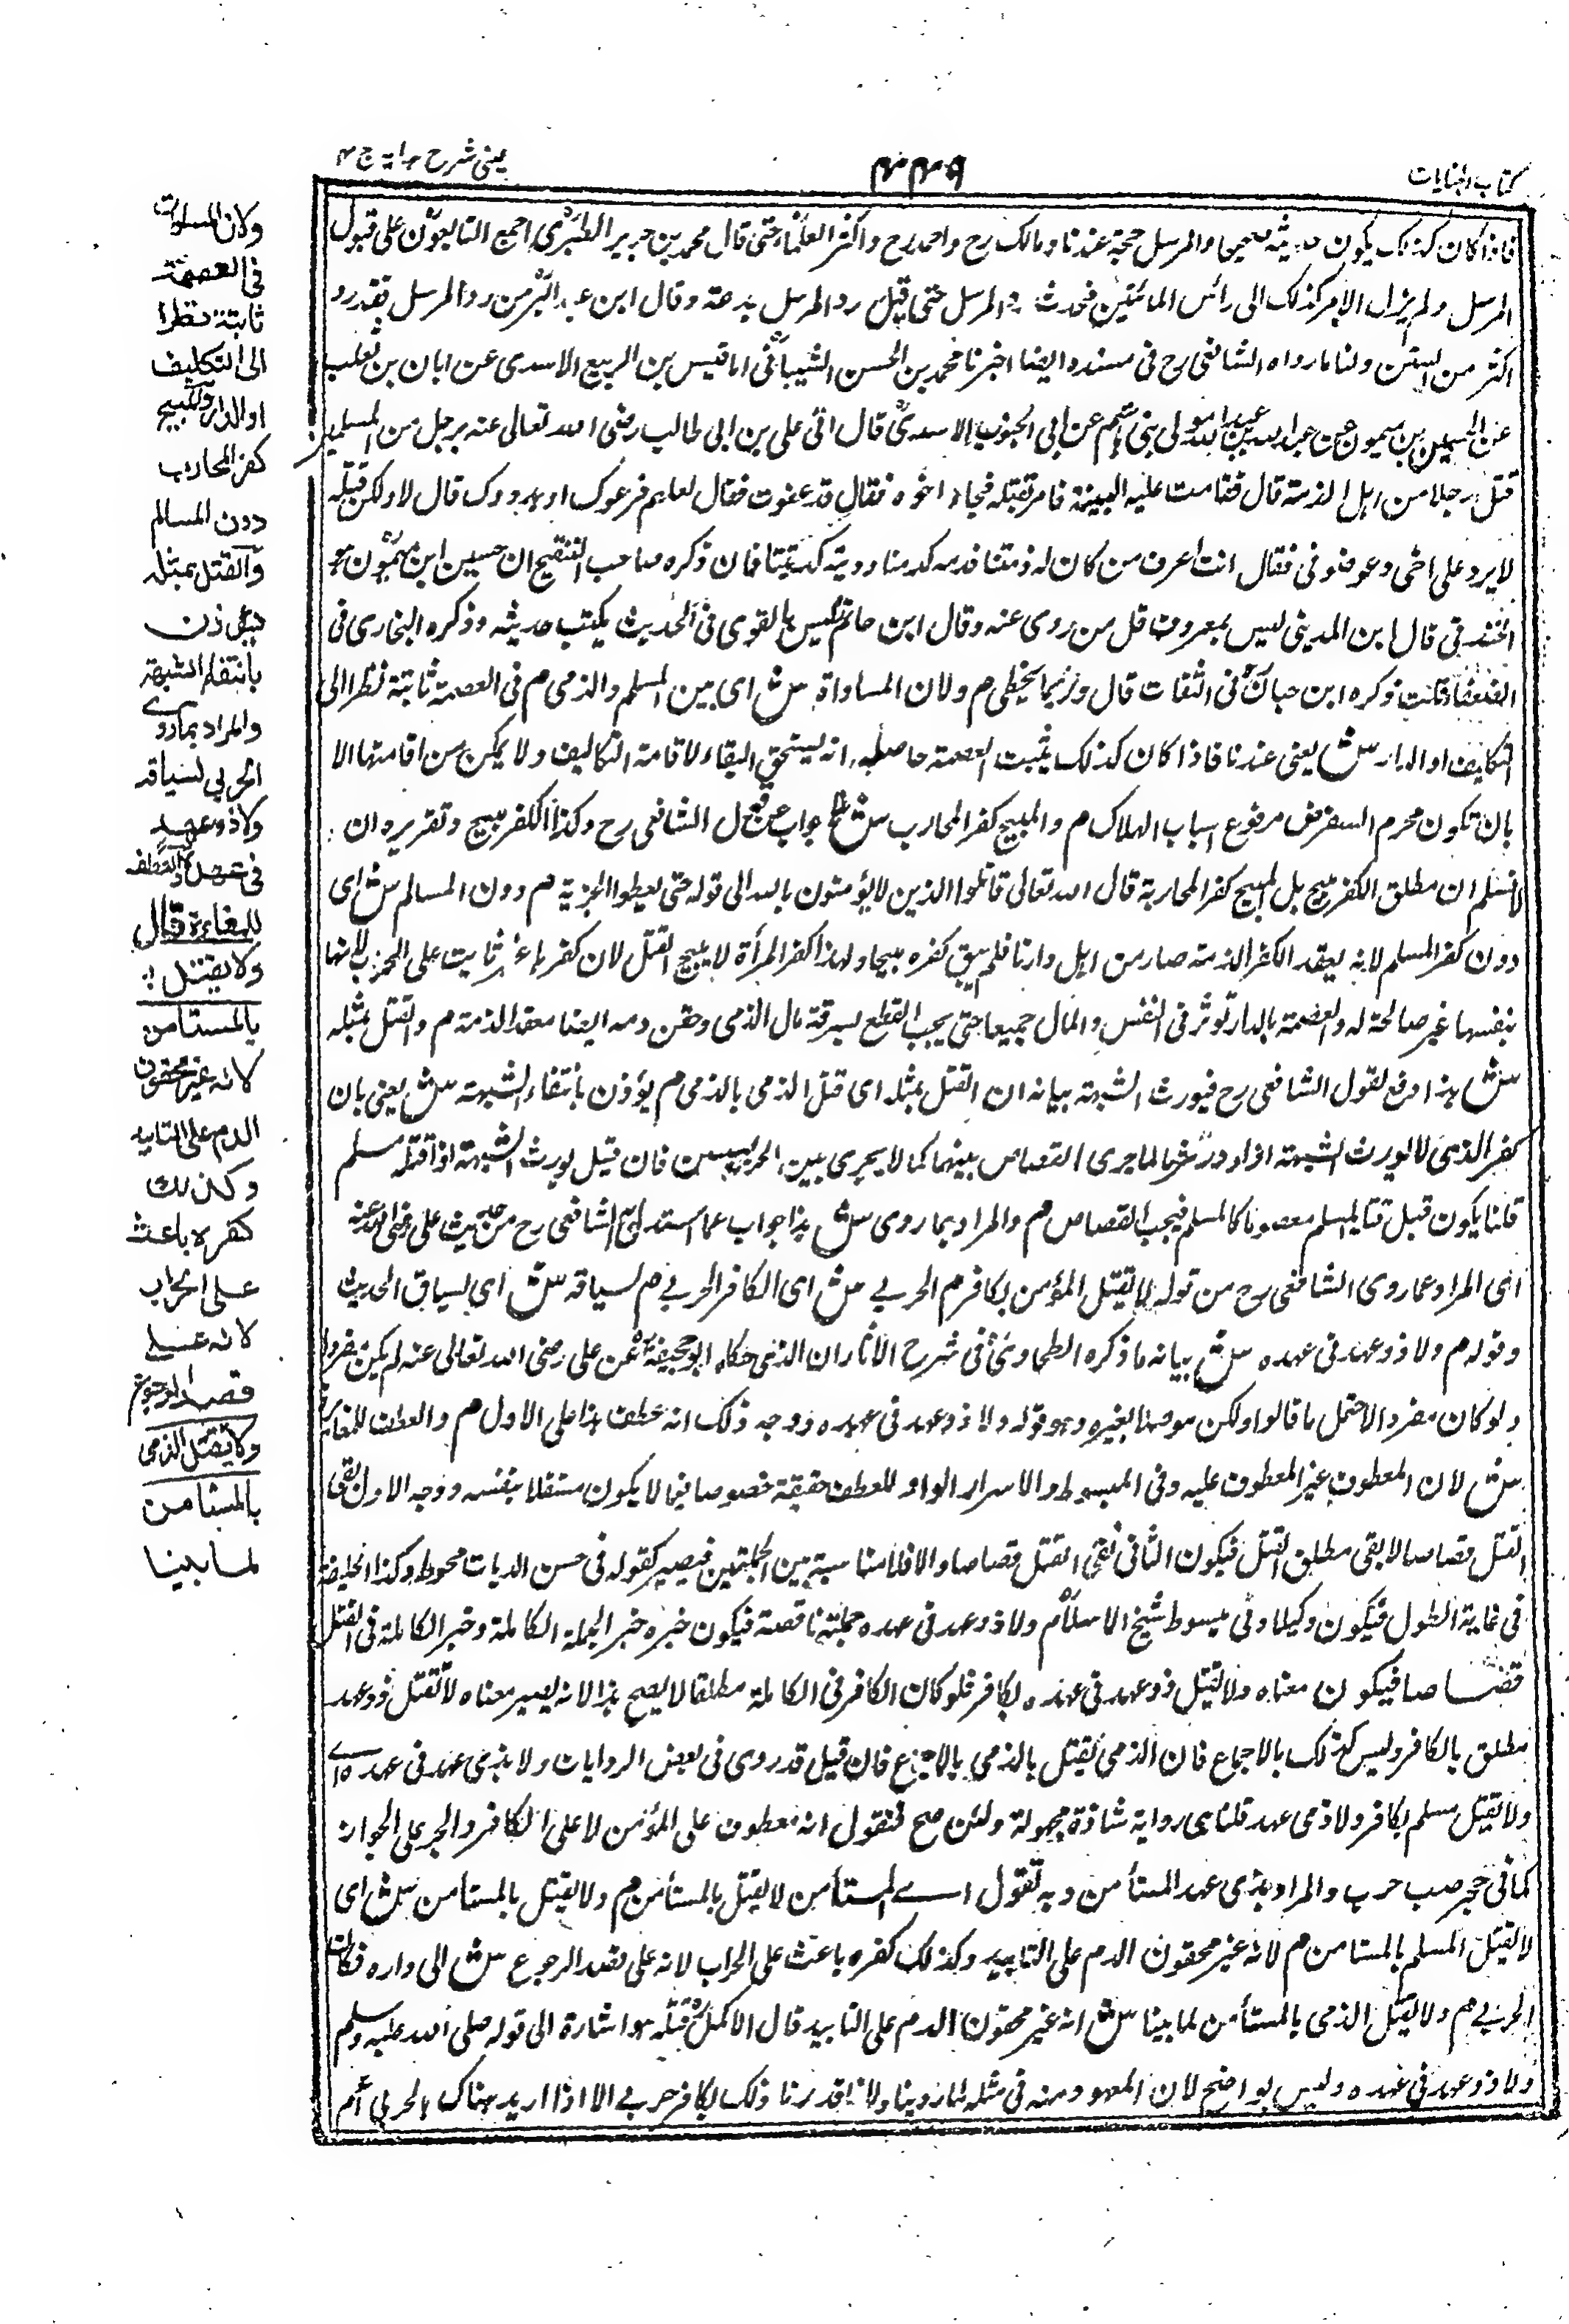 كتاب الجنايات
٤٤٩
عينى شرح هداية ج ٤
فاذا كان كذلك يكون حديثه صحيحا والمرسل حجة عندنا ومالك رح واحمد رح واكثر العلماء حتى قال محمد بن جرير الطبرى اجمع التابعون على قبول
المرسل ولم يزل الامر كذلك الى رأس المائتين فحدث رد المرسل حتى قيل رد المرسل بدعة وقال ابن عبد البر من رد المرسل فقد رد
اكثر من السنن ولنا ما رواه الشافعى رح فى مسنده ايضا اخبرنا محمد بن الحسن الشيبانى انا قيس بن الربيع الاسدى عن ابان بن تغلب
عن الحسين بن ميمون عن عبد الله بن عبد الله مولى بنى هاشم عن ابى الجنوب الاسدى قال اتى على بن ابى طالب رضى الله تعالى عنه برجل من المسلمين
قتل رجلا من اهل الذمة قال فقامت عليه البينة فامر بقتله فجاء اخوه فقال قد عفوت فقال لعلهم فزعوك او هددوك قال لا ولكن قتله
لا يرد على اخى وعوضونى فقال انت اعرف من كان له ذمتنا فدمه كدمنا وديته كديتنا فان ذكره صاحب التنقيح ان حسين ابن ميمون هو
الخندقى قال ابن المدينى ليس بمعروف قل من روى عنه وقال ابن حاتم ليس بالقوى فى الحديث يكتب حديثه وذكره البخارى فى
الضعفاء قلت ذكره ابن حبان فى الثقات قال وربما يخطى م ولان المساواة ش اى بين المسلم والذمى م فى العصمة ثابتة نظرا الى
التكليف او الدار ش يعنى عندنا فاذا كان كذلك يثبت العصمة حاصله انه يستحق البقاء لاقامة التكاليف ولا يمكن من اقامتها الا
بان تكون محرم التعرض مرفوع اسباب الهلاك م والمبيح كفر المحارب ش هذا جواب عن قول الشافعى رح وكذا الكفر مبيح وتقريره ان
لا نسلم ان مطلق الكفر مبيح بل المبيح كفر المحاربة قال الله تعالى قاتلوا الذين لا يؤمنون بالله الى قوله حتى يعطوا الجزية م دون المسالم ش اى
دون كفر المسلم لانه بعقد الكفر الذمة صار من اهل دارنا فلم يبق كفره مبيحا ولهذا كفر المرأة لا يبيح القتل لان كفرها غير ثابت على الحرب لانها
بنفسها غير صالحة له والعصمة بالدار تؤثر فى النفس والمال جميعا حتى يجب القطع بسرقة مال الذمى وحقن دمه ايضا معقد الذمة م والقتل بمثله
ش هذا دفع لقول الشافعى رح فيورث الشبهة بيانه ان القتل بمثله اى قتل الذمى بالذمى م يؤذن بانتفاء الشبهة ش يعنى بان
كفر الذمى لا يورث الشبهة اذ لو اورثها لما جرى القصاص بينهما كما لا يجرى بين الحربيين فان قيل يورث الشبهة اذا قتله مسلم
قلنا يكون قبل قتل المسلم معصوما كالمسلم فيجب القصاص م والمراد بما روى ش هذا جواب عما استدل به الشافعى رح من حديث على رضى الله عنه
اى المراد عما روى الشافعى رح من قوله لا يقتل المؤمن بكافر م الحربى ش اى الكافر الحربى م لسياقه ش اى لسياق الحديث
وقوله م ولا ذو عهد فى عهده ش بيانه ما ذكره الطحاوى فى شرح الآثار ان الذى حكاه ابو جحيفة عن على رضى الله تعالى عنه لم يكن مفردا
ولو كان مفردا لاحتمل ما قالوا ولكن موصولا بغيره وهو قوله ولا ذو عهد فى عهده ووجه ذلك انه عطف هذا على الاول م والعطف للمغايرة
ش لان المعطوف غير المعطوف عليه وفى المبسوط والاسرار الواو للعطف حقيقة خصوصا فيما لا يكون مستقلا بنفسه ووجه الاول نفى
القتل قصاصا لا نفى مطلق القتل فيكون الثانى نفى القتل قصاصا والا فلا مناسبة بين الجملتين فيصير كقوله فى حسن الديات محوط وكذا الخليفة
فى غاية الطول فيكون وكيلا وفى مبسوط شيخ الاسلام ولا ذو عهد فى عهده جملة ناقصة فيكون خبره خبر الجملة الكاملة وخبر الكاملة فى القتل
قصاصا فيكون معناه ولا يقتل ذو عهد فى عهده بكافر فلو كان الكافر فى الكاملة مطلقا لا يصح هذا لانه يصير معناه لا يقتل ذو عهد
مطلق بالكافر وليس كذلك بالاجماع فان الذمى يقتل بالذمى بالاجماع فان قيل قد روى فى بعض الروايات ولا بذى عهد فى عهده اى
ولا يقتل مسلم بكافر ولا ذى عهد قلنا هى رواية شاذة مجهولة ولئن صح فنقول انه معطوف على المؤمن لا على الكافر والجر على الجوار
كما فى جحر ضب خرب والمراد بذى عهد المستأمن وبه نقول اى المستأمن لا يقتل بالمستأمن م ولا يقتل بالمستأمن ش اى
لا يقتل المسلم بالمستامن م لانه غير محقون الدم على التابيد وكذلك كفره باعث على الحراب لانه على قصد الرجوع ش الى داره فكان
الحربى م ولا يقتل الذمى بالمستأمن لما بينا ش انه غير محقون الدم على التابيد قال الاكمل قيل هو اشارة الى قوله صلى الله عليه وسلم
ولا ذو عهد فى عهده وليس بواضح لان المعهود منه فى مثله لما روينا ولانا قدرنا ذلك بكافر حربى الا اذا اريد هناك بالحربى اعم
ولان المساواة
فى العصمة
ثابتة نظرا
الى التكليف
او الدار والمبيح
كفر المحارب
دون المسالم
والقتل بمثله
يؤذن
بانتفاء الشبهة
والمراد بما روى
الحربى لسياقه
ولا ذو عهد
فى عهده والعطف
للمغايرة قال
ولا يقتل
بالمستامن
لانه غير محقون
الدم على التابيد
وكذلك
كفره باعث
على الحراب
لانه على
قصد الرجوع
ولا يقتل الذمى
بالمستامن
لما بينا